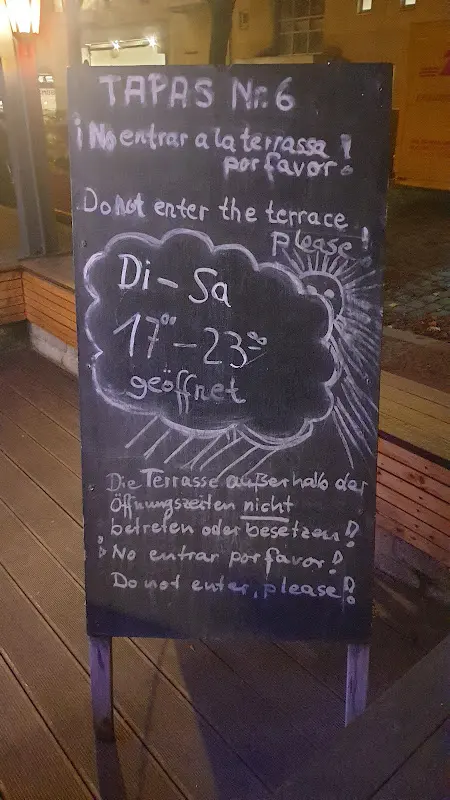 TAPAS Nr. 6
¡No entrar a la terrassa
por favor!
Do not enter the terrace
please!
Di - Sa
17⁰⁰ - 23⁰⁰
geöffnet
Die Terrasse außerhalb der
Öffnungszeiten nicht
betreten oder besetzen!
¡No entrar por favor!
Do not enter, please!